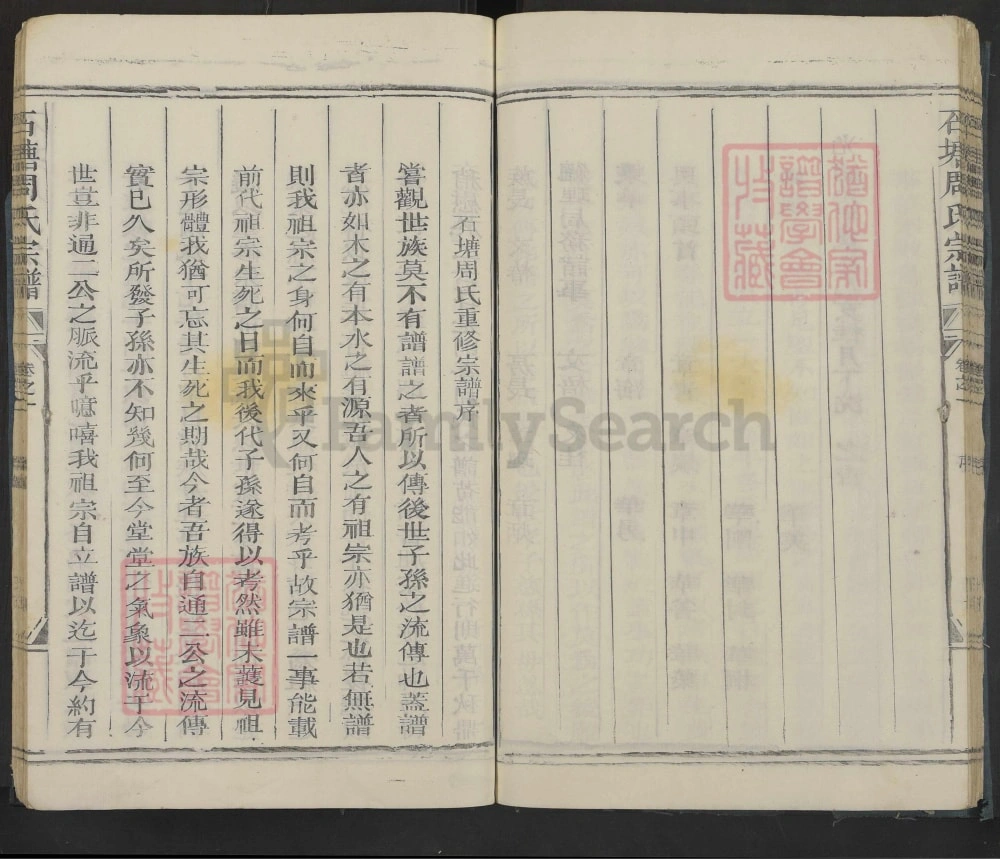 石塘周氏宗譜
石塘周氏重修宗譜序
嘗觀世族莫不有譜譜之者所以傳後世子孫之流傳也蓋譜
者亦如木之有本水之有源吾人之有祖宗亦猶是也若無譜
則我祖宗之身何自而來乎又何自而考乎故宗譜一事能載
前代祖宗生死之日而我後代子孫遂得以考然雖未獲見祖
宗形體我猶可忘其生死之期哉今者吾族自通二公之流傳
實已久矣所發子孫亦不知幾何至今堂堂之氣象以流于今
世豈非通二公之脈流乎噫嘻我祖宗自立譜以迄于今約有
石塘周氏宗譜
卷之一
FamilySearch